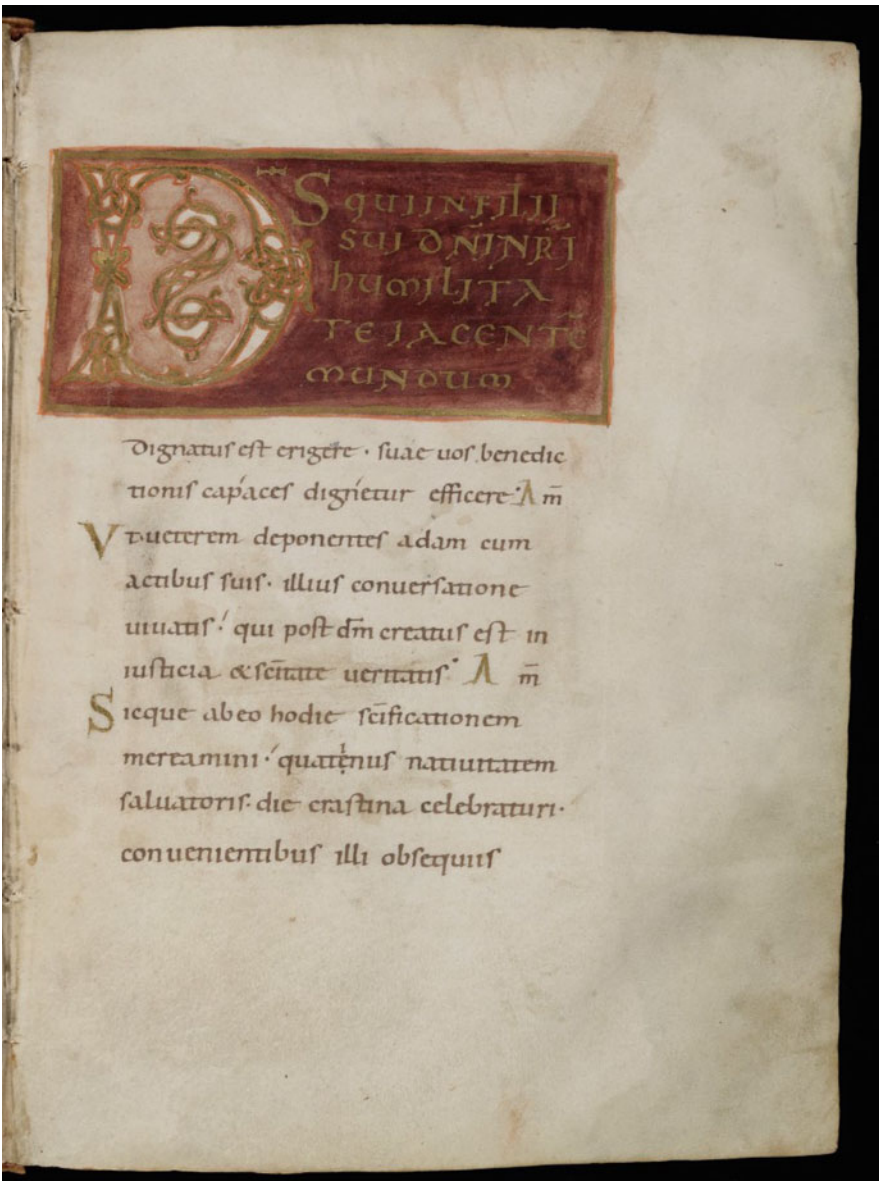 D̅S QUI IN FILII
SUI DN̄I NRĪ
HUMILITA
TE IACENTĒ
MUNDUM
dignatus est erigere · suae uos benedic
tionis capaces dignetur efficere · Am̄
Vt ueterem deponentes adam cum
actibus suis · illius conuersatione
uiuatis · qui post dm̄ creatus est in
iusticia & sc̄itate ueritatis · Am̄
Sicque ab eo hodie sc̄ificationem
mereamini · quatenus natiuitatem
saluatoris · die crastina celebraturi ·
conuenientibus illi obsequiis